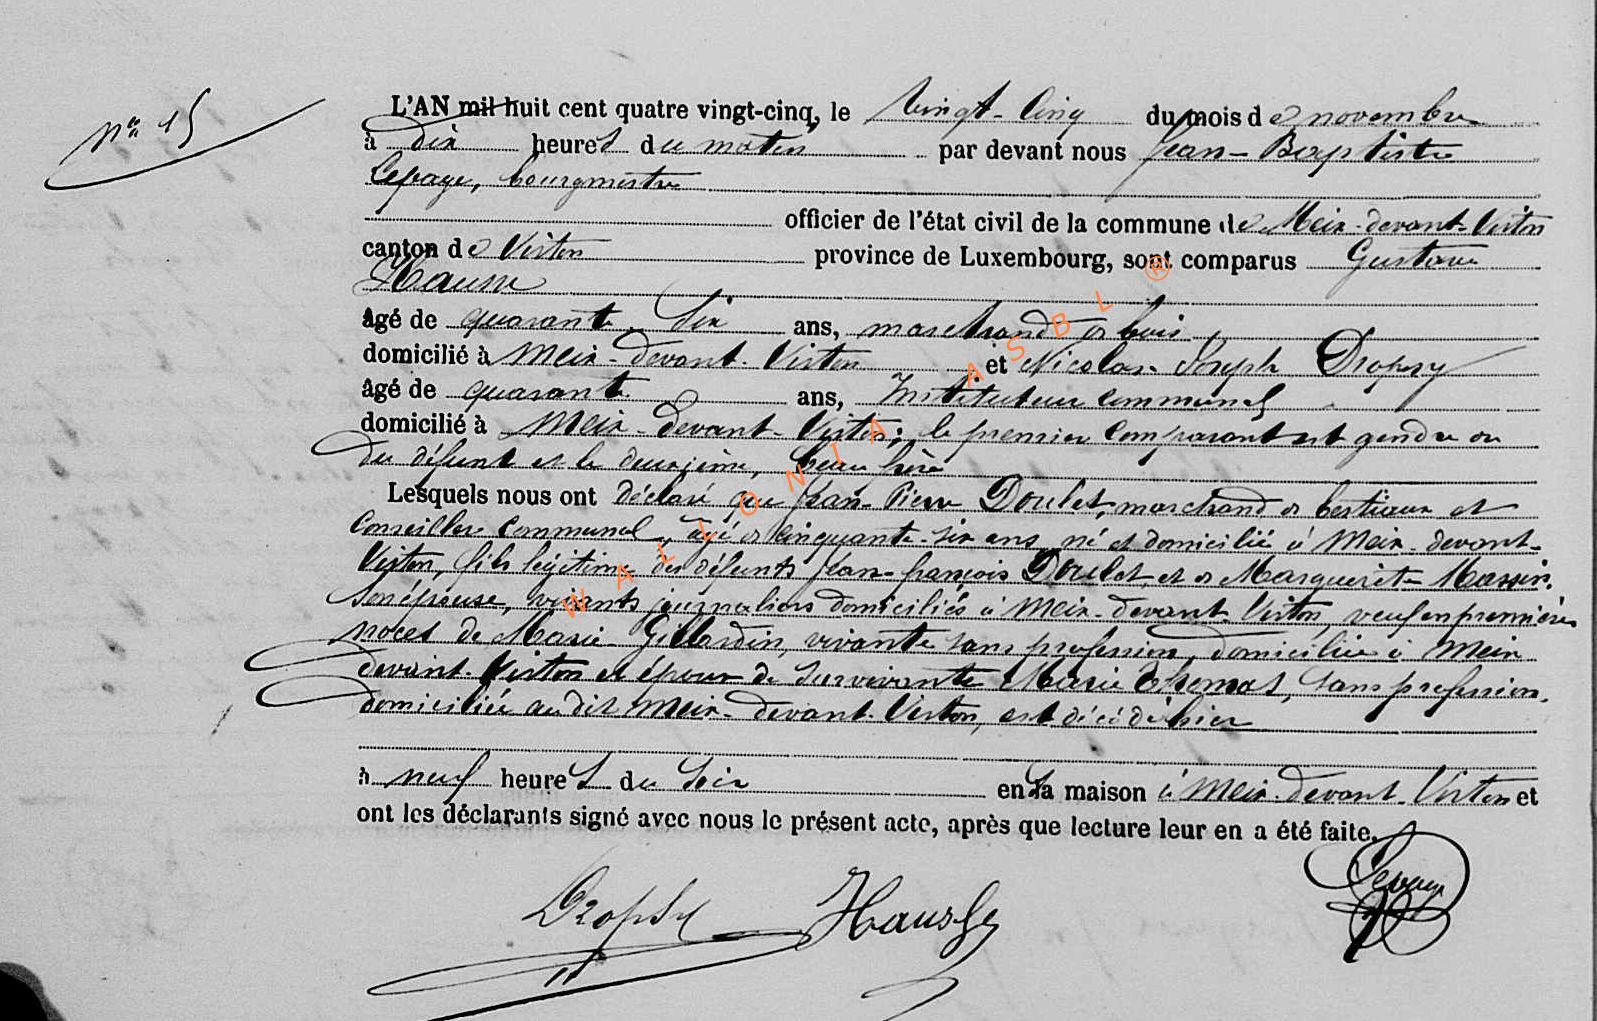 nº 15
L'AN mil huit cent quatre vingt-cinq, le vingt-cinq du mois de novembre
à dix heures du matin par devant nous Jean-Baptiste
Lepage, bourgmestre
officier de l'état civil de la commune de Meix-devant-Virton
canton de Virton province de Luxembourg, sont comparus Gustave
Hausse
âgé de quarante six ans, marchand de bois
domicilié à Meix-devant-Virton et Nicolas Joseph Dropsy
âgé de quarante ans, Instituteur communal
domicilié à Meix-devant-Virton; le premier comparant est gendre
du défunt et le deuxième, beau frère
Lesquels nous ont déclaré que Jean-Pierre Doulet, marchand de bestiaux et
Conseiller communal, âgé de cinquante-six ans, né et domicilié à Meix-devant-
Virton, fils légitime des défunts Jean-françois Doulet et de Marguerite Massin,
son épouse, vivants journaliers domiciliés à Meix-devant-Virton, veuf en premières
noces de Marie Gillardin, vivante sans profession, domiciliée à Meix
devant-Virton et époux de survivante Marie Thomas, sans profession,
domiciliée audit Meix-devant-Virton, est décédé hier
à neuf heures du soir en sa maison à Meix-devant-Virton et
ont les déclarants signé avec nous le présent acte, après que lecture leur en a été faite.
Dropsy Hausse Lepage
WALLONIA ASBL ®